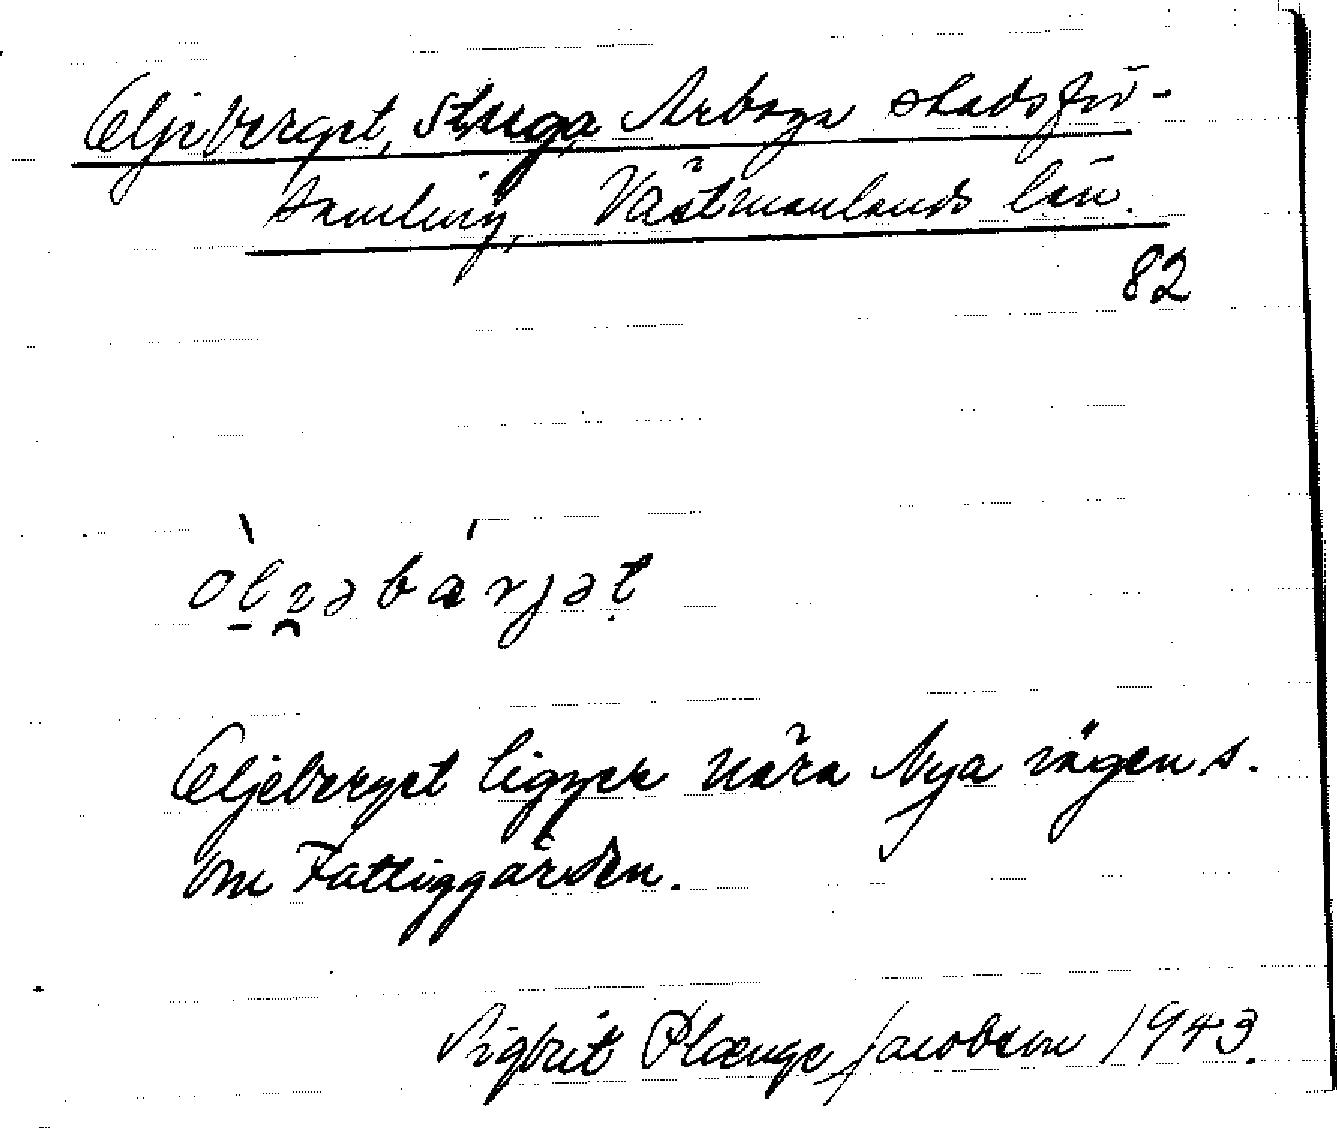 Oljeberget, Stuga, Arboga stadsför-
samling, Västmanlands län.
82
òl̠ȥəbárjət
Oljeberget ligger nära Nya vägen s.
om Fattiggården.
Sigbrit Plænge Jacobson 1943.